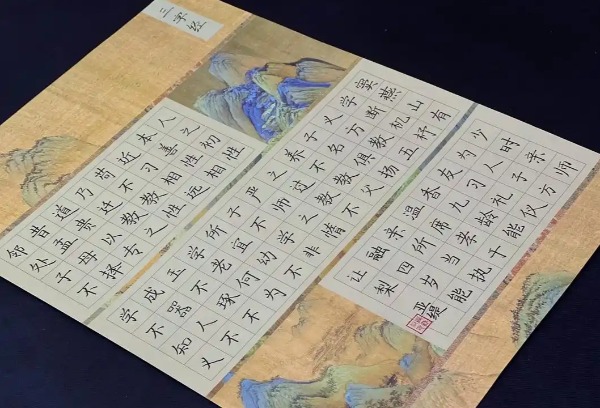 三字经
人之初性
本善性相
近习相远
苟不教性
乃迁教之
道贵以专
昔孟母择
邻处子不
窦燕山有
学断机杼
义方教五
子名俱扬
养不教父
之过教不
严师之惰
子不学非
所宜幼不
学老何为
玉不琢不
成器人不
学不知义
少时亲师
为人子方
友习礼仪
香九龄能
温席孝于
亲所当执
融四岁能
让梨
亚缇